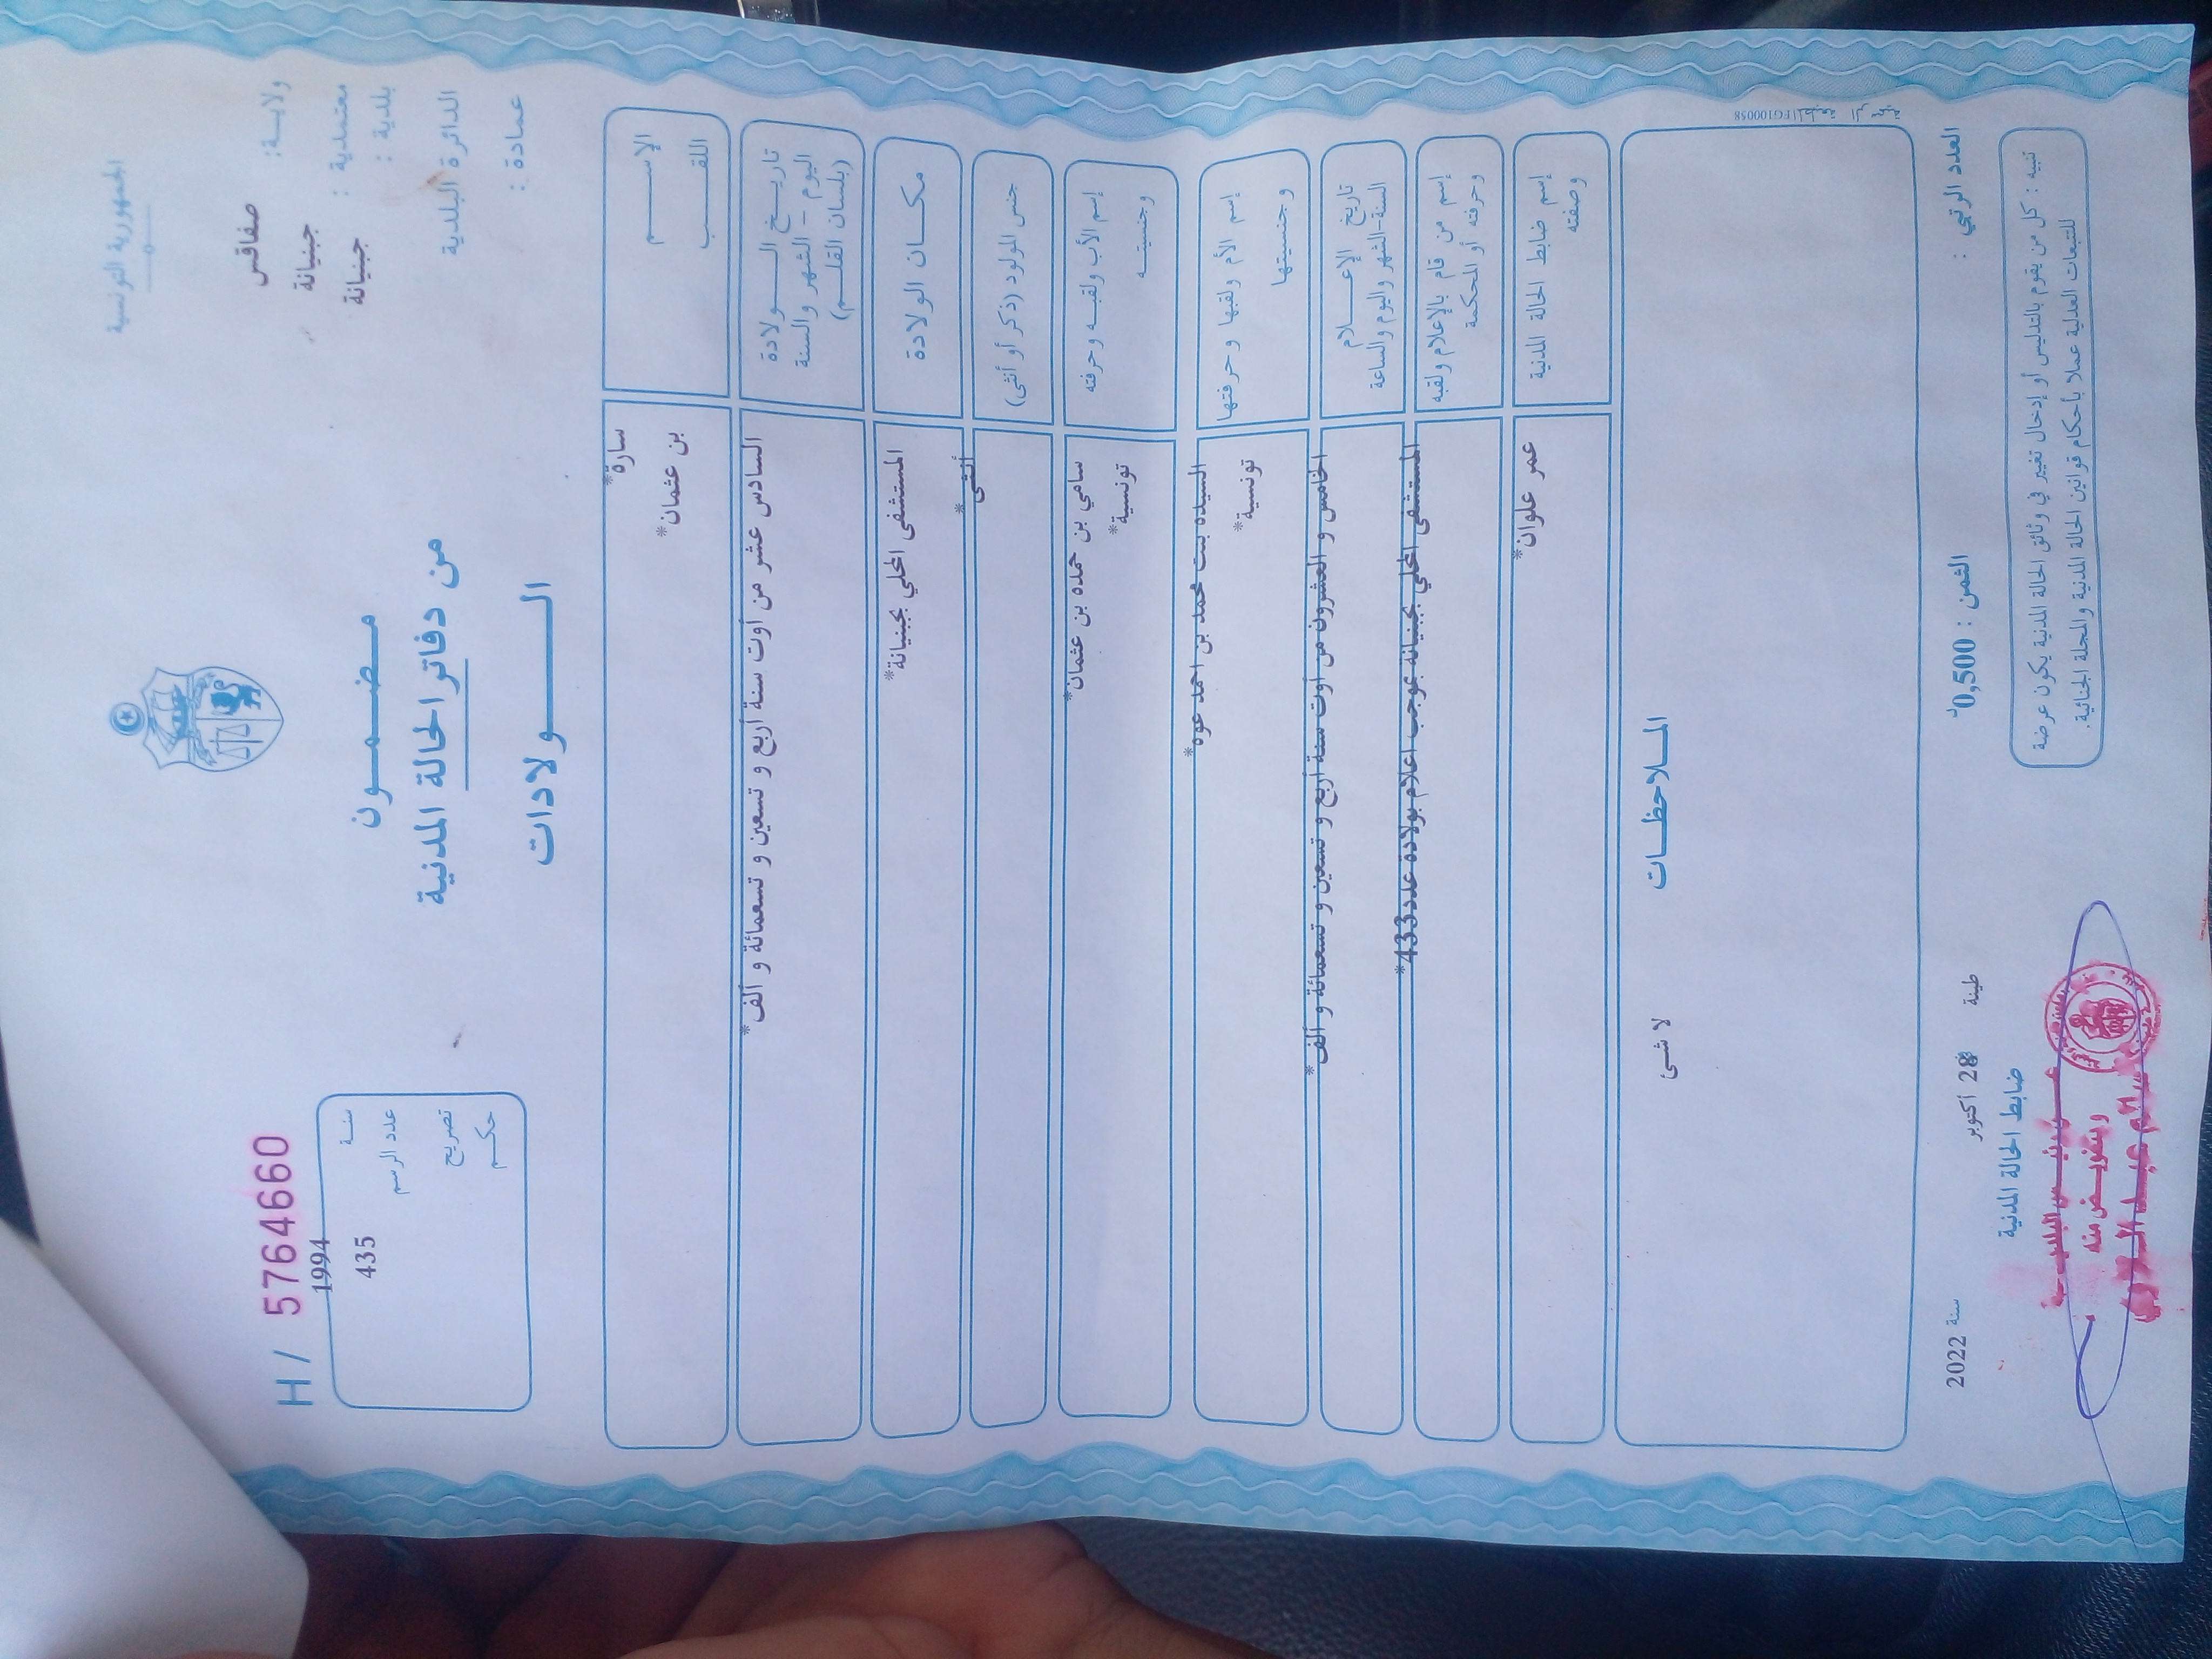 الجمهورية التونسية
ولايـــة: صفاقس
معتمدية : جبنيانة
بلدية : جبنيانة
الدائرة البلدية
عمادة :
مـــضـــمـــون
من دفاتر الحالة المدنية
الـــــولادات
H / 5764660
سنـة 1994
عدد الرسم 435
تصريح
حكـــم
الإســـــم سارة*
اللقـــب بن عثمان*
تاريـــخ الـــــولادة السادس عشر من أوت سنة أربع و تسعين و تسعمائة و ألف*
اليوم - الشهر والسنة
(بلسان القلـــم)
مكـــان الولادة المستشفى المحلي بجبنيانة*
جنس المولود (ذكر أو أنثى) أنثى*
إسم الأب ولقبـــه وحرفته سامي بن حمده بن عثمان*
وجنسيتـــه تونسية*
إسم الأم ولقبها وحرفتها السيده بنت محمد بن احمد عوه*
وجنسيتها تونسية*
تاريخ الإعـــلام الخامس و العشرون من أوت سنة أربع و تسعين و تسعمائة و ألف*
السنة-الشهر واليوم والساعة
إسم من قام بالإعلام ولقبه المستشفى المحلي بجبنيانة بموجب اعلام بولادة عدد433*
وحرفته أو المحكمة
إسم ضابط الحالة المدنية عمر علوان*
وصفته
المـــلاحظـــات
لا شئ
FG100058
العدد الرتبي :
الثمن : 0,500د
طينة 28 أكتوبر سنة 2022
ضابط الحالة المدنية
تنبيه : كل من يقوم بالتدليس أو إدخال تغيير في وثائق الحالة المدنية يكون عرضة
للتتبعات العدلية عملا بأحكام قوانين الحالة المدنية والمجلة الجنائية.
وبتفويـــض منه